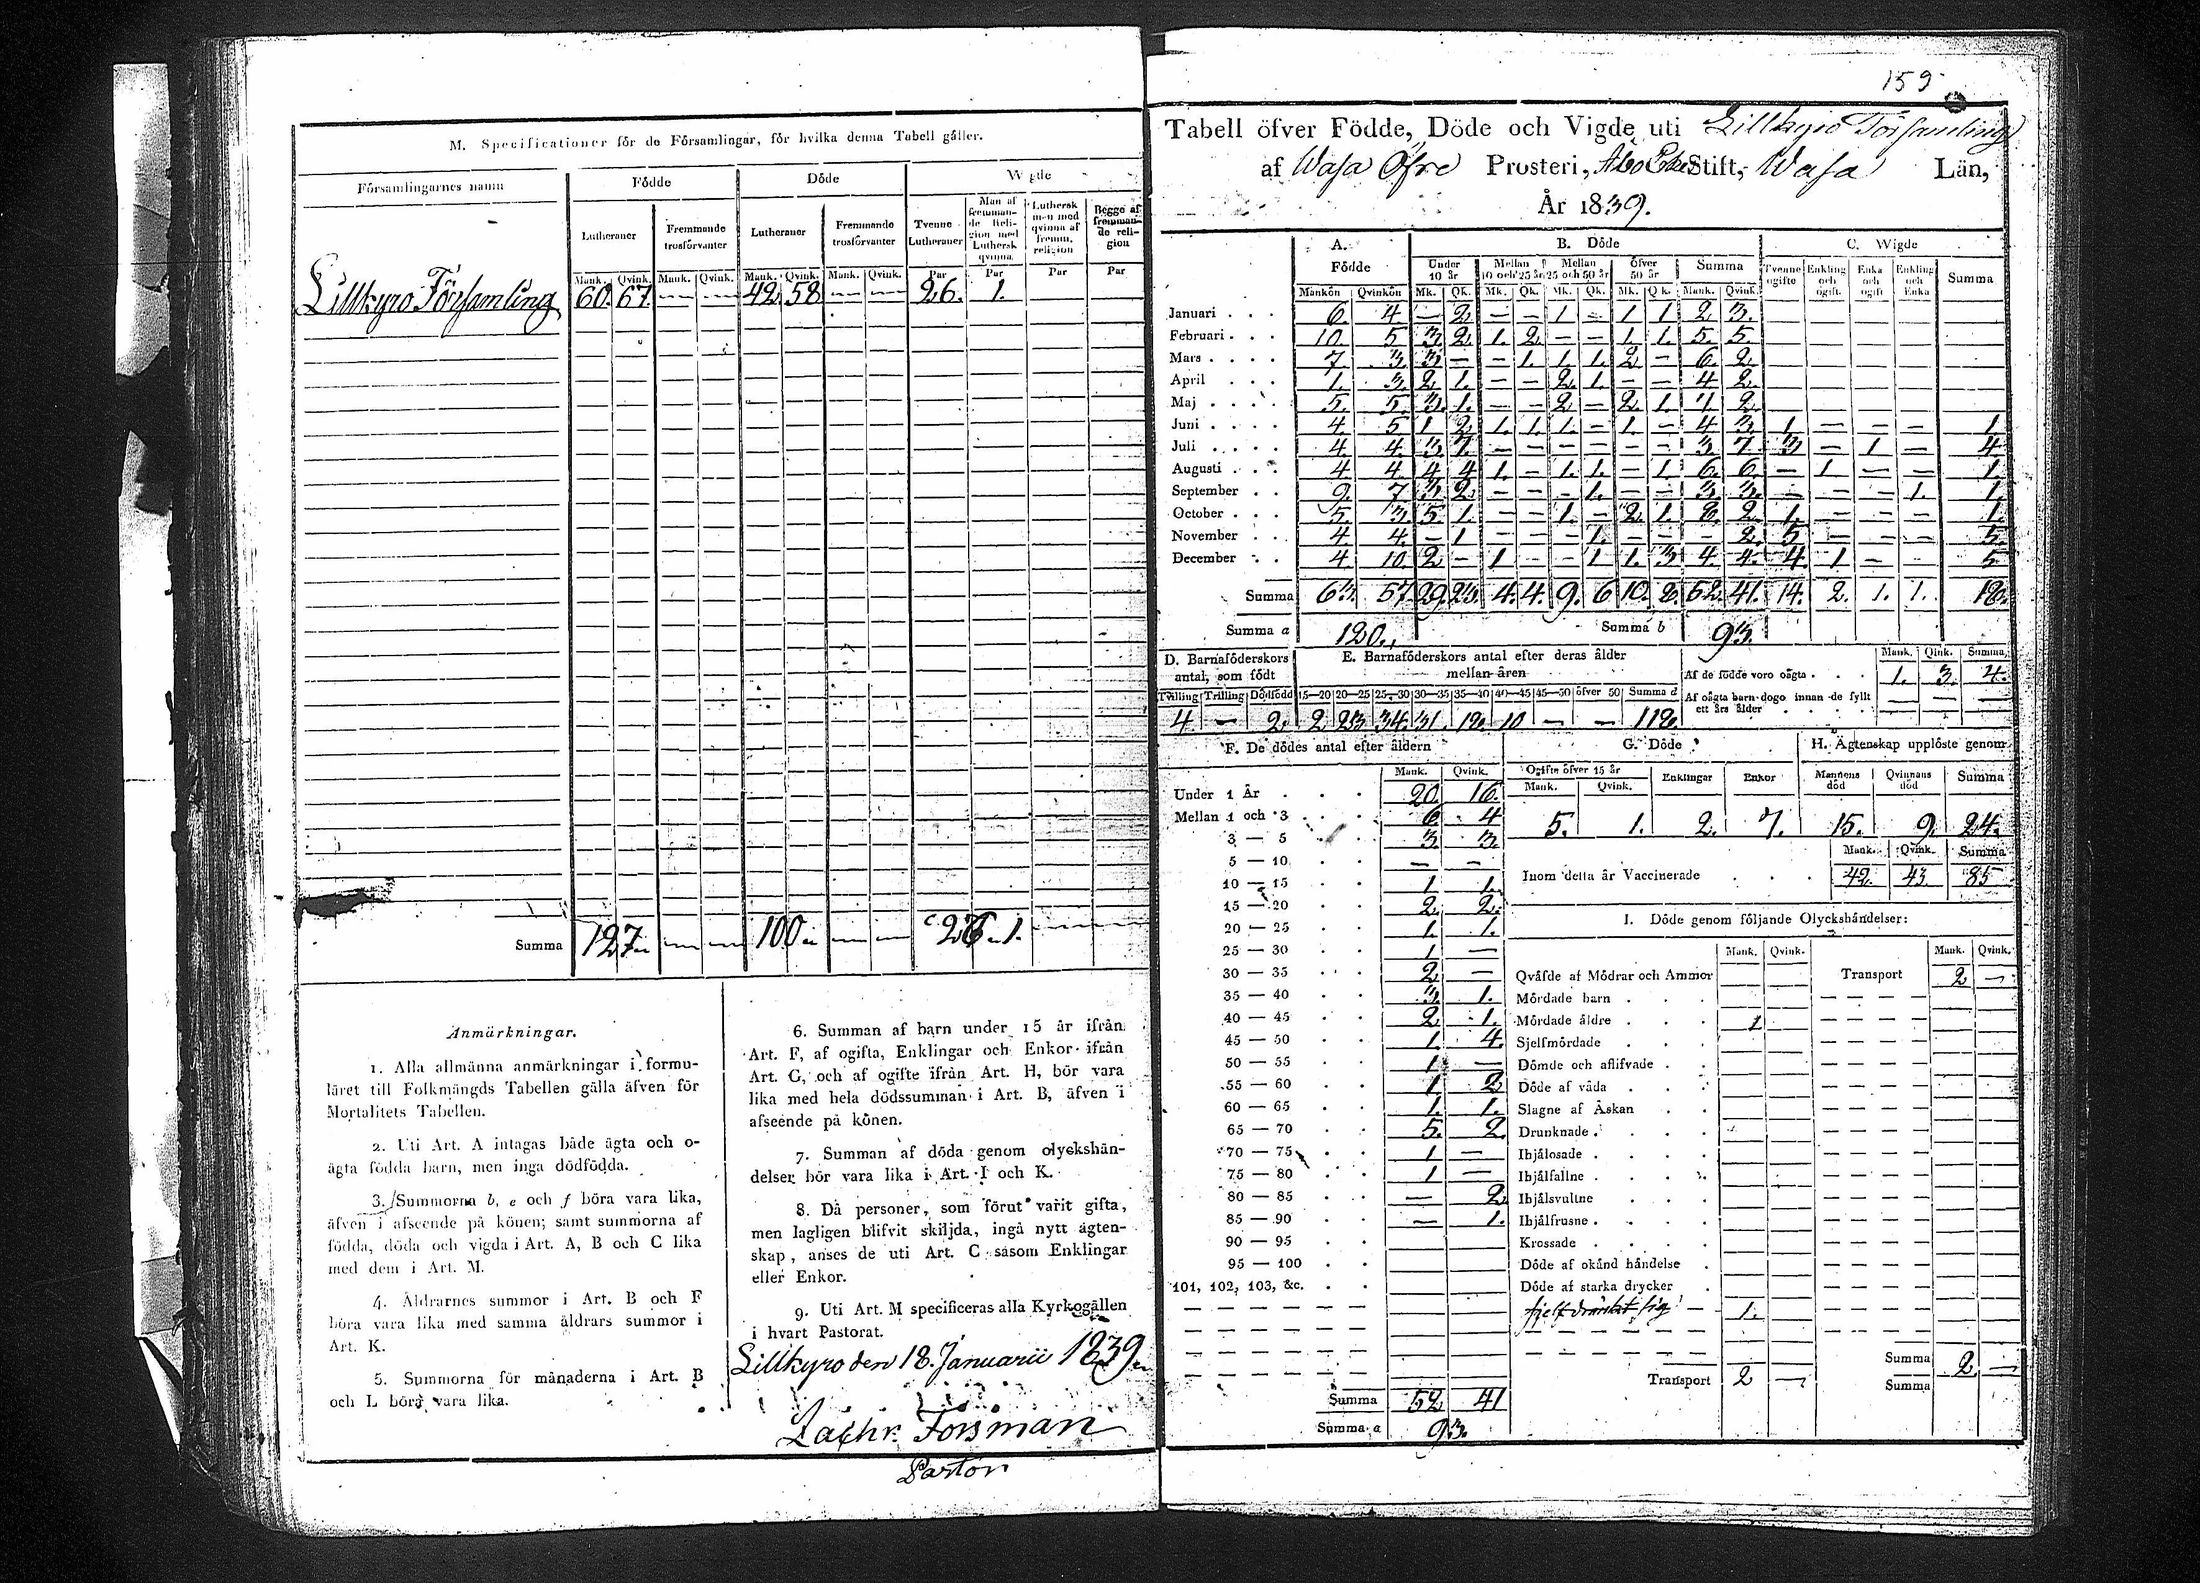 M. Specificationer för de Församlingar, för hvilka denna Tabell gäller.
Församlingarnes namn | Födde | Döde | Wigde
Lutheraner | Fremmande trosförvanter | Lutheraner | Fremmande trosförvanter | Tvenne Lutheraner | Man af fremmande Religion med Luthersk qvinna | Luthersk man med qvinna af fremm. religion | Begge af fremmande religion
Mank. Qvink. Mank. Qvink. Mank. Qvink. Mank. Qvink. Par Par Par Par
Lillkyro Församling 60. 67. — — 42. 58 — — 26. 1.
Summa 127 — — 100 — — 26 1.
Anmärkningar.
1. Alla allmänna anmärkningar i formu-
läret till Folkmängds Tabellen gälla äfven för
Mortalitets Tabellen.
2. Uti Art. A intagas både ägta och o-
ägta födda barn, men inga dödfödda.
3. Summorna b, e och f böra vara lika,
äfven i afseende på könen; samt summorna af
födda, döda och vigda i Art. A, B och C lika
med dem i Art. M.
4. Äldrarnes summor i Art. B och F
böra vara lika med samma äldrars summor i
Art. K.
5. Summorna för månaderna i Art. B
och L böra vara lika.
6. Summan af barn under 15 år ifrån
Art. F, af ogifta, Enklingar och Enkor ifrån
Art. G, och af ogifte ifrån Art. H, bör vara
lika med hela dödssumman i Art. B, äfven i
afseende på könen.
7. Summan af döda genom olyckshän-
delser bör vara lika i Art. I och K.
8. Då personer, som förut varit gifta,
men lagligen blifvit skiljda, ingå nytt ägten-
skap, anses de uti Art. C såsom Enklingar
eller Enkor.
9. Uti Art. M specificeras alla Kyrkogällen
i hvart Pastorat.
Lillkyro den 18. Januarii 1839
Zachr. Forsman
Pastor
159
Tabell öfver Födde, Döde och Vigde uti Lillkyro Församling
af Wasa Öfre Prosteri, Åbo Stift, Wasa Län,
År 1839.
A. Födde | B. Döde | C. Wigde
Under 10 år | Mellan 10 och 25 år | Mellan 25 och 50 år | Öfver 50 år | Summa | Tvenne ogifte | Enkling och ogift | Enka och ogift | Enkling och Enka | Summa
Mankön Qvinkön Mk. Qk. Mk. Qk. Mk. Qk. Mk. Qk. Mank. Qvink.
Januari . . . 6. 4 — 2. — — 1 — 1 1 2 3.
Februari . . . 10. 5 3 2 1. 2. — — 1. 1. 5. 5.
Mars . . . 7. 3. 3 — — 1. 1. 1. 2 — 6. 2.
April . . . 1. 3. 2 1. — — 2. 1. — — 4 2.
Maj . . . 5. 5. 3. 1. — — 2 — 2. 1. 7 2.
Juni . . . 4. 5 1 2. 1. 1. 1. — 1. — 4 3. 1. — — — 1.
Juli . . . 4. 4. 3 7. — — — — — — 3 7. 3 — 1 — 4
Augusti . . . 4 4. 4 4 1. — 1. 1. — 1. 6. 6. — 1 — — 1.
September . . 9. 7 3 2 — — — 1. — — 3 3. — — — 1. 1.
October . . . 5. 3. 5 1. — — 1. — 2. 1. 8. 2. 1. — — — 1.
November . . 4 4. — 1 — — — 1. — — — 2. 5 — — — 5.
December . . 4 10. 2 — 1 — — 1 1. 3 4. 4. 4. 1 — — 5
Summa 63. 57. 29. 23. 4. 4. 9. 6 10. 8. 52. 41. 14. 2. 1. 1. 18.
Summa a 120. Summa b 93.
D. Barnaföderskors antal, som födt | E. Barnaföderskors antal efter deras ålder mellan åren | Mank. Qink. Summa
Af de födde voro oägta . . . 1. 3. 4.
Tvilling Trilling Dödfödd 15—20 20—25 25—30 30—35 35—40 40—45 45—50 öfver 50 Summa d
Af oägta barn dogo innan de fyllt ett års ålder — — —
4. — 2. 2 23 34. 31. 18. 10 — — 118.
F. De dödes antal efter åldern
Mank. Qvink.
Under 1 År . . . 20. 16.
Mellan 1 och 3 . . . 6. 4
3 — 5 3 3.
5 — 10 — —
10 — 15 1 1.
15 — 20 2. 2.
20 — 25 1. 1.
25 — 30 1 —
30 — 35 2 —
35 — 40 3 1.
40 — 45 2 1.
45 — 50 1. 4.
50 — 55 1 —
55 — 60 1. 2
60 — 65 1. 1.
65 — 70 5. 2.
70 — 75 1 —
75 — 80 1 —
80 — 85 — 2
85 — 90 — 1.
90 — 95
95 — 100
101, 102, 103, &c.
Summa 52 41
Summa a 93.
G. Döde
Ogifte öfver 15 år | Enklingar | Enkor
Mank. Qvink.
5. 1. 2. 7.
H. Ägtenskap upplöste genom
Mannens död | Qvinnans död | Summa
15. 9. 24.
Mank. Qvink. Summa
Inom detta år Vaccinerade . . . 42. 43 85
I. Döde genom följande Olyckshändelser:
Mank. Qvink. Mank. Qvink.
Qväfde af Mödrar och Ammor Transport 2 —
Mördade barn
Mördade äldre 1
Sjelfmördade
Dömde och aflifvade
Döde af våda
Slagne af Åskan
Drunknade
Ihjälosade
Ihjälfallne
Ihjälsvultne
Ihjälfrusne
Krossade
Döde af okänd händelse
Döde af starka drycker
sjelf dränkt sig 1.
Transport 2 —
Summa 2. —
Summa